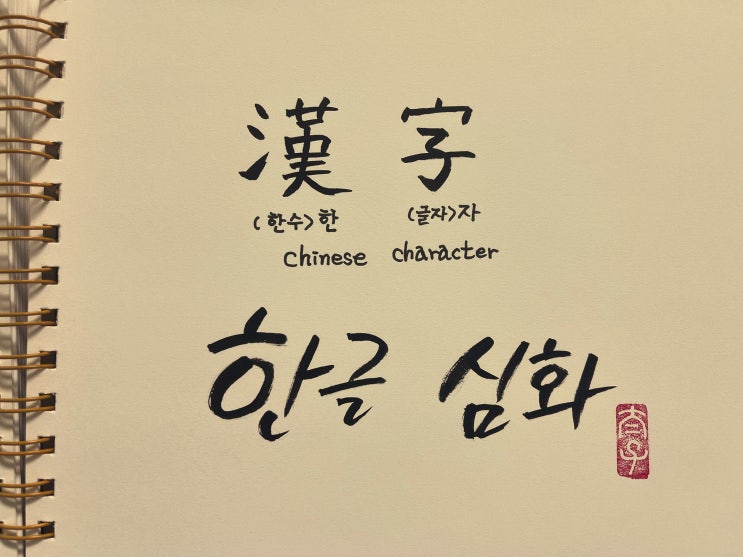 漢 字
(한수>한 (글자>자
Chinese character
한글 심화